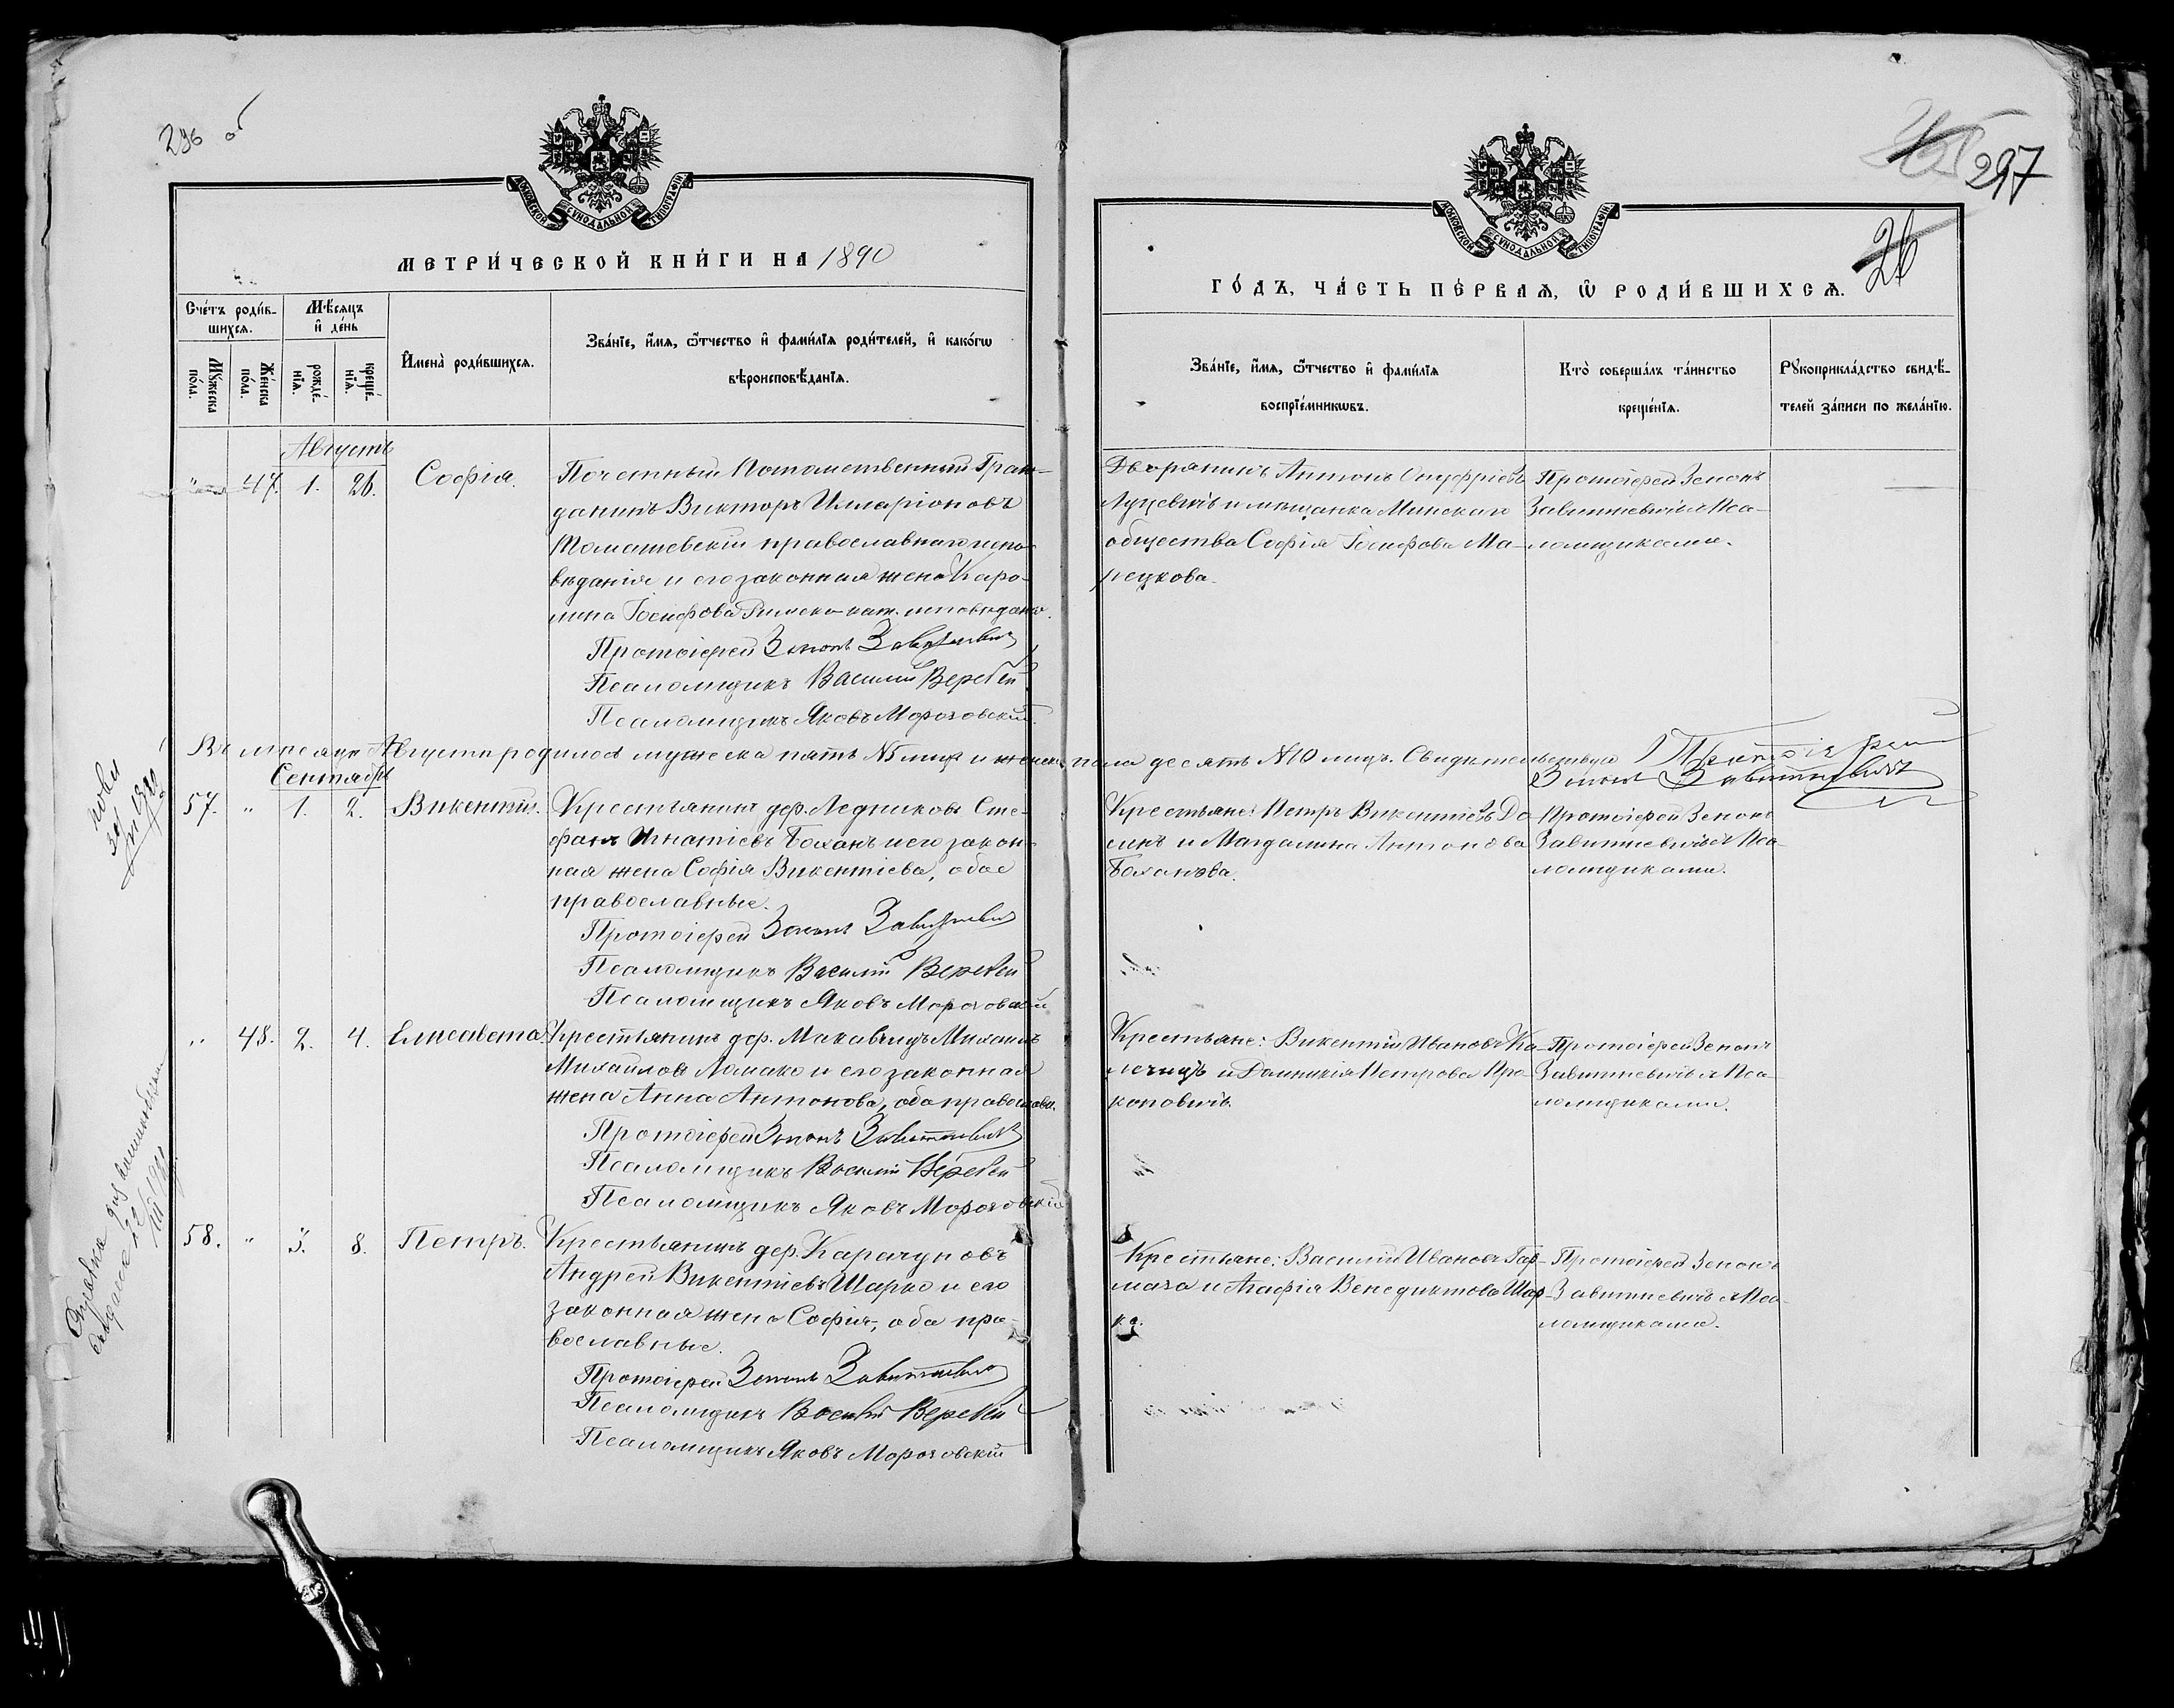 296 об
МОСКОВСКОЙ СУНОДАЛЬНОЙ ТИПОГРАФІИ
МЕТРИ́ЧЕСКОЙ КНИ́ГИ НА 1890
Сче́тъ роди́в-
шихся.
Мѣ́сяцъ
и҆ де́нь
Мꙋ́жеска
по́ла.
Же́нска
по́ла.
рожде́-
нїѧ.
креще́-
нїѧ.
И҆мена̀ роди́вшихся.
Зва́нїе, и҆́мѧ, ѻ҆́тчество и҆ фами́лїѧ роди́телей, и҆ како́гѡ
вѣроисповѣ́данїѧ.
Августъ
" 47. 1. 26. Софія.
Почетный Потомственный Граж-
данинъ Викторъ Илларіоновъ
Томашевскій православнаго испо-
вѣданія и его законная жена Каро-
лина Іосифова Римско-кат. исповѣданія.
Протоіерей Зенонъ Завитневичъ
Псаломщикъ Василій Веребей
Псаломщикъ Яковъ Морозовскій.
Въ мѣсяцѣ Августѣ родилось мужеска пять №5 лицъ и женска
Сентябрь
57. " 1. 2. Викентій.
Крестьянинъ дер. Ледниковъ Сте-
фанъ Игнатіевъ Боханъ и его закон-
ная жена Софія Викентіева, обое
православные.
Протоіерей Зенонъ Завитневичъ
Псаломщикъ Василій Веребей
Псаломщикъ Яковъ Морозовскій
" 48. 2. 4. Елисавета.
Крестьянинъ дер. Михаилъ
Михайловъ Ломако и его законная
жена Анна Антонова, оба православн.
Протоіерей Зенонъ Завитневичъ
Псаломщикъ Василій Веребей
Псаломщикъ Яковъ Морозовскій
58. " 3. 8. Петръ.
Крестьянинъ дер. Карачуновъ
Андрей Викентіевъ Шарко и его
законная жена Софія, оба пра-
вославные.
Протоіерей Зенонъ Завитневичъ
Псаломщикъ Василій Веребей
Псаломщикъ Яковъ Морозовскій
297
26
МОСКОВСКОЙ СУНОДАЛЬНОЙ ТИПОГРАФІИ
ГО́ДЪ, ЧА́СТЬ ПЕ́РВАѦ, Ѽ РОДИ́ВШИХСѦ.
Зва́нїе, и҆́мѧ, ѻ҆́тчество и҆ фами́лїѧ
воспрїе́мникѡвъ.
Кто̀ соверша́лъ та́инство
креще́нїѧ.
Рꙋкоприкла́дство свидѣ́-
телей за́писи по жела́нїю.
Дворянинъ Антонъ Онуфріевъ
Луцевичъ и мѣщанка Минскаго
общества Софія Іосифова Ма-
рецкова.
Протоіерей Зенонъ
Завитневичъ съ Пса-
ломщиками.
пола десять №10 лицъ. Свидѣтельствую Протоіерей
Зенонъ Завитневичъ
Крестьяне: Петръ Викентіевъ До-
линъ и Магдалина Антонова
Боханова.
Протоіерей Зенонъ
Завитневичъ съ Пса-
ломщиками.
Крестьяне: Викентій Ивановъ Ка-
и Доминикія Петрова Про-
коповичъ.
Протоіерей Зенонъ
Завитневичъ съ Пса-
ломщиками.
Крестьяне: Василій Ивановъ Гар-
маза и Агафія Венедиктова Шар-
ко.
Протоіерей Зенонъ
Завитневичъ съ Пса-
ломщиками.